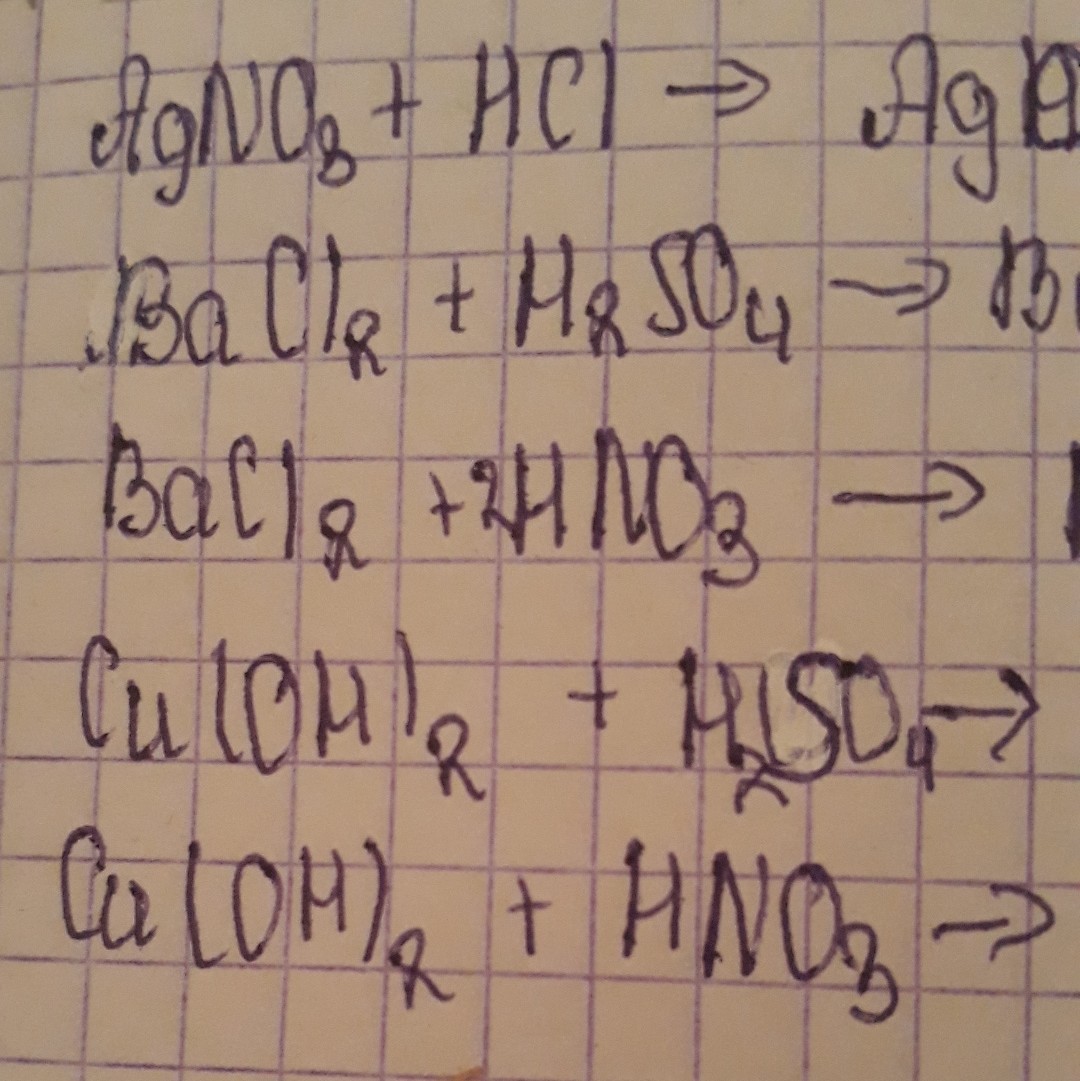 AgNO₃ + HCl → Ag
BaCl₂ + H₂SO₄ → B
BaCl₂ + 2HNO₃ →
Cu(OH)₂ + H₂SO₄ →
Ca(OH)₂ + HNO₃ →